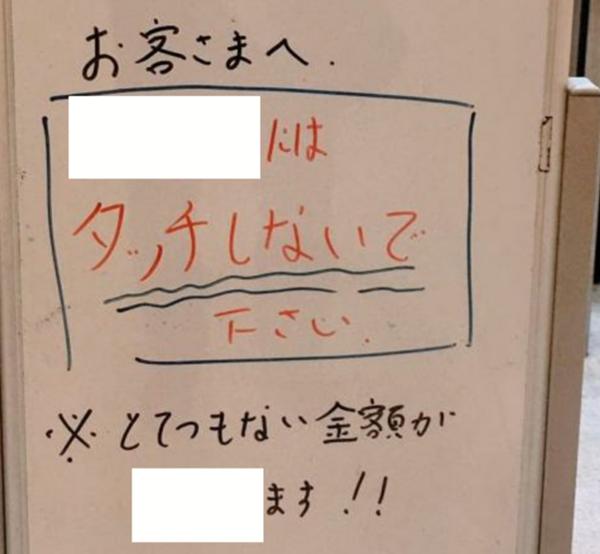 お客さまへ.
には
タッチしないで
下さい.
※とてつもない金額が
ます!!